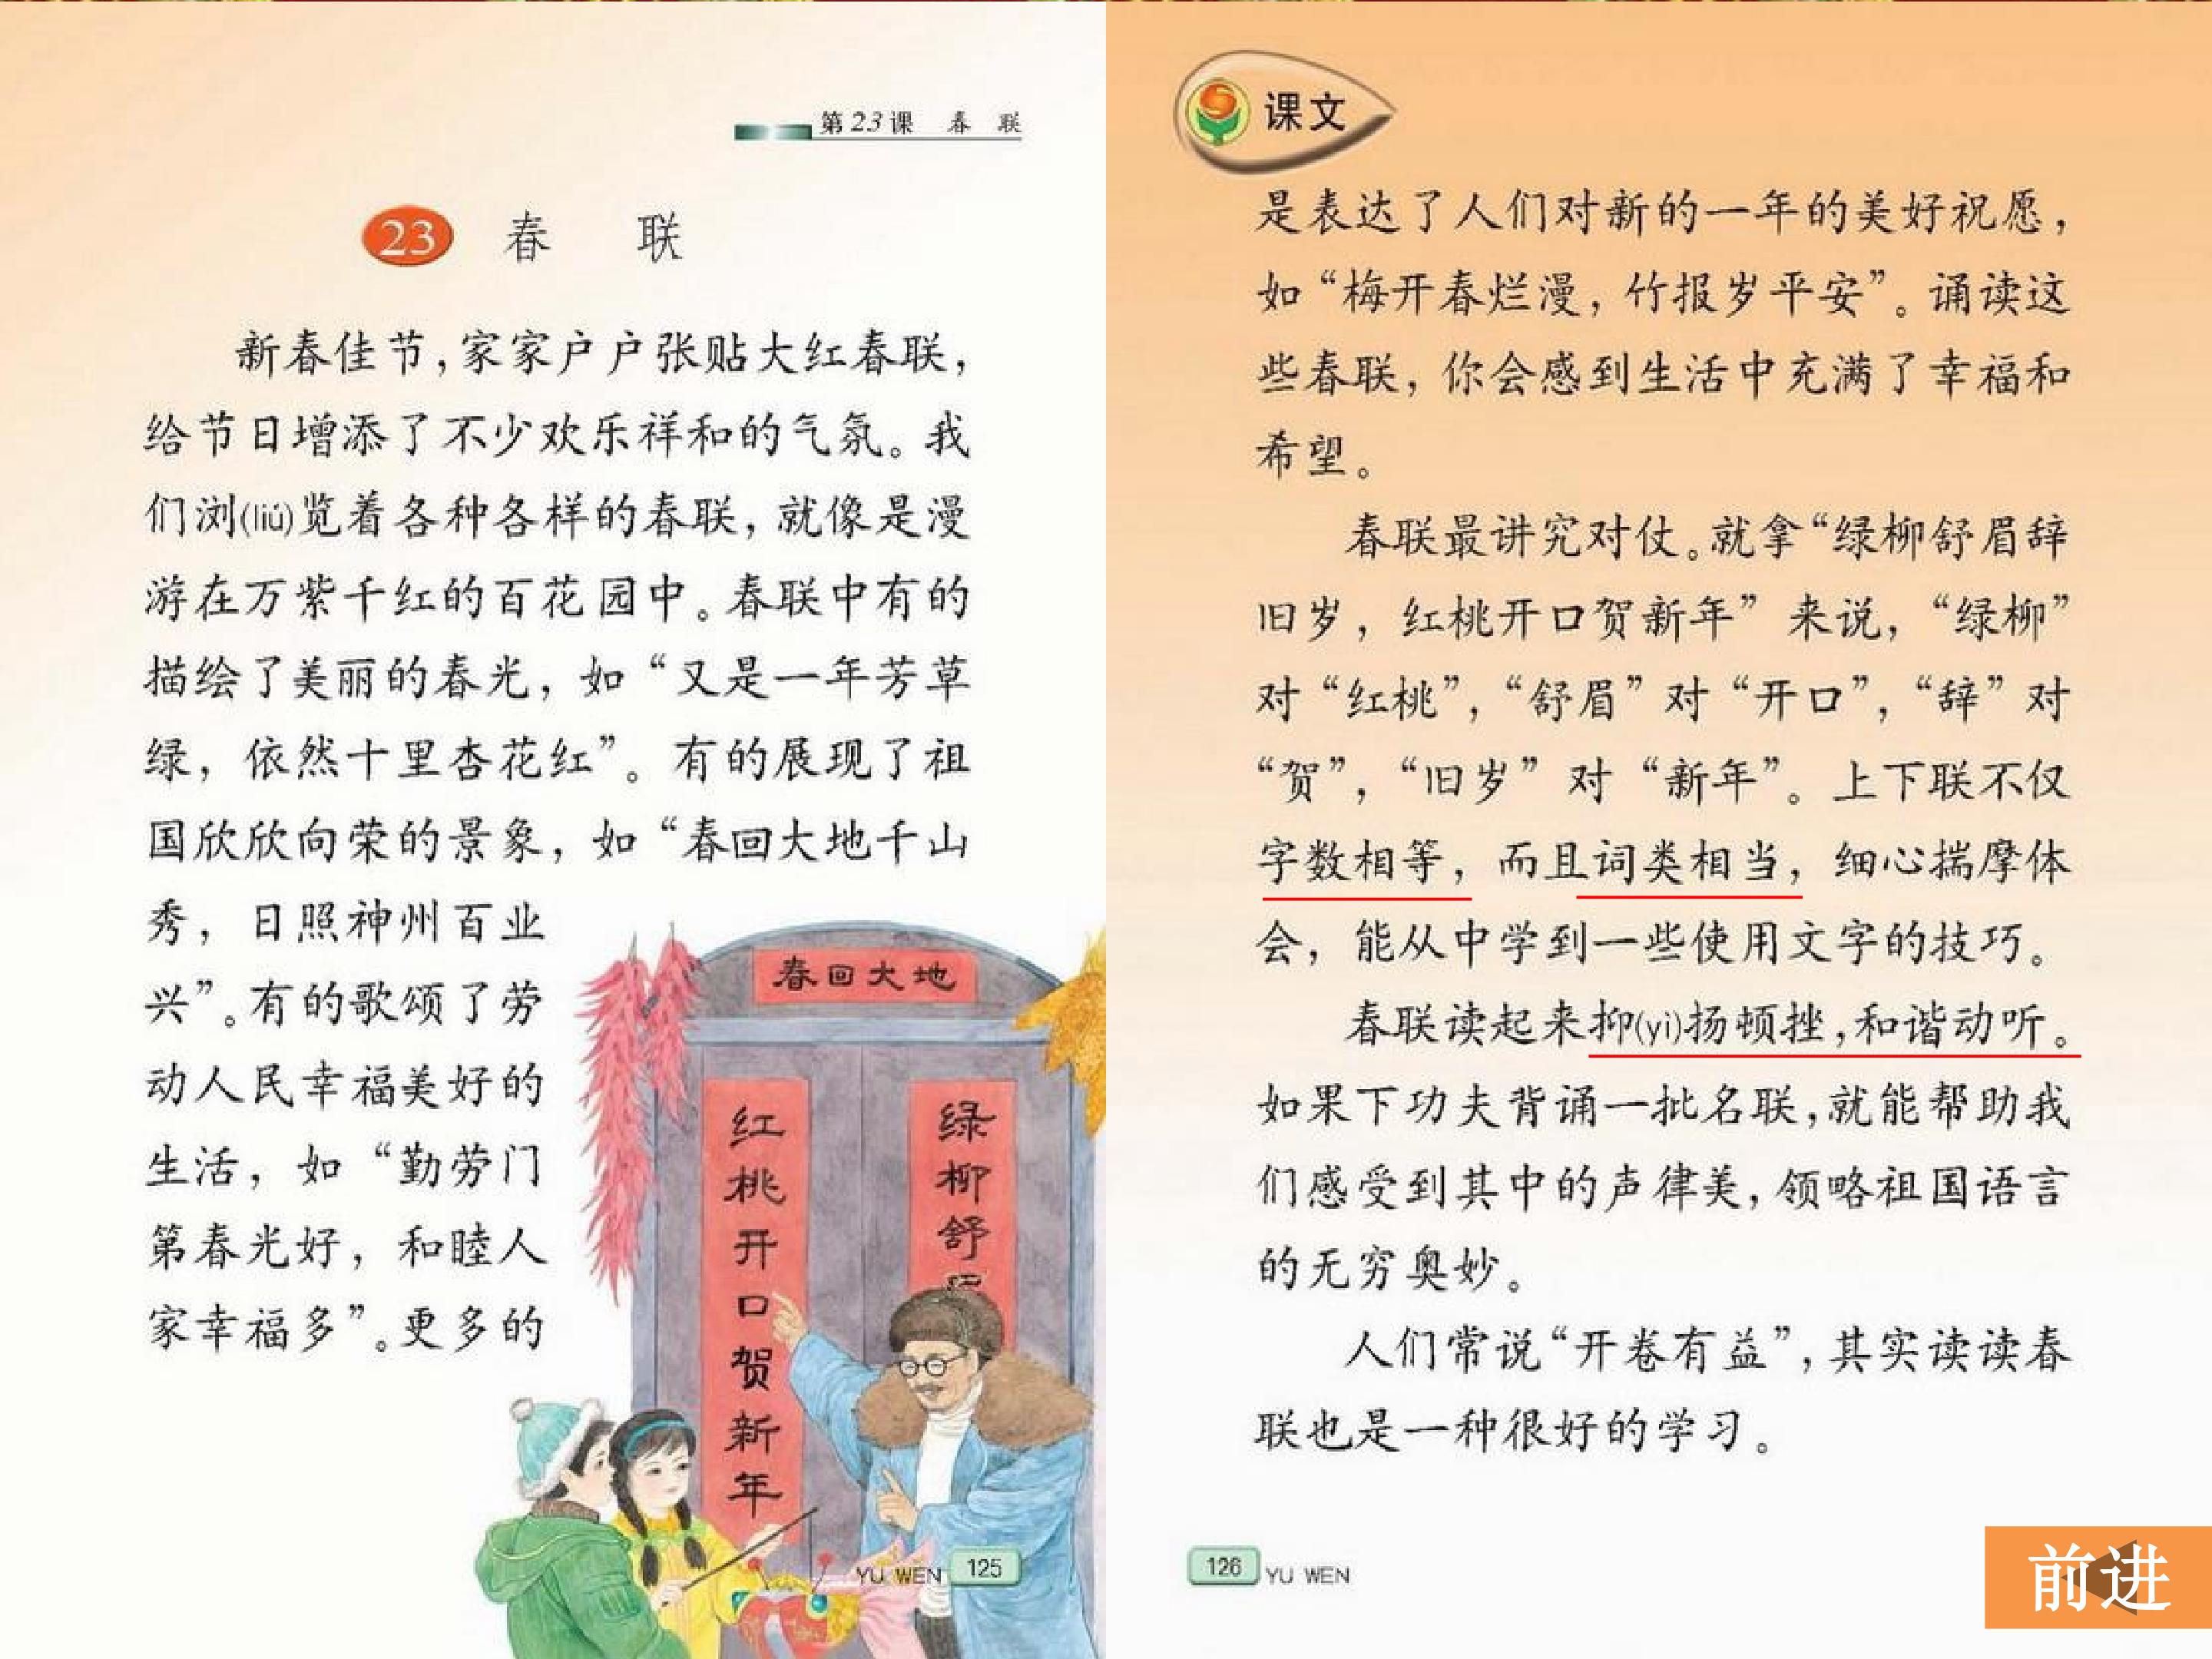 第23课 春 联
23 春 联
新春佳节，家家户户张贴大红春联，
给节日增添了不少欢乐祥和的气氛。我
们浏(liú)览着各种各样的春联，就像是漫
游在万紫千红的百花园中。春联中有的
描绘了美丽的春光，如“又是一年芳草
绿，依然十里杏花红”。有的展现了祖
国欣欣向荣的景象，如“春回大地千山
秀，日照神州百业
兴”。有的歌颂了劳
动人民幸福美好的
生活，如“勤劳门
第春光好，和睦人
家幸福多”。更多的
春回大地
绿柳舒
红桃开口贺新年
YU WEN 125
课文
是表达了人们对新的一年的美好祝愿，
如“梅开春烂漫，竹报岁平安”。诵读这
些春联，你会感到生活中充满了幸福和
希望。
春联最讲究对仗。就拿“绿柳舒眉辞
旧岁，红桃开口贺新年”来说，“绿柳”
对“红桃”，“舒眉”对“开口”，“辞”对
“贺”，“旧岁”对“新年”。上下联不仅
字数相等，而且词类相当，细心揣摩体
会，能从中学到一些使用文字的技巧。
春联读起来抑(yì)扬顿挫，和谐动听。
如果下功夫背诵一批名联，就能帮助我
们感受到其中的声律美，领略祖国语言
的无穷奥妙。
人们常说“开卷有益”，其实读读春
联也是一种很好的学习。
126 YU WEN
前进